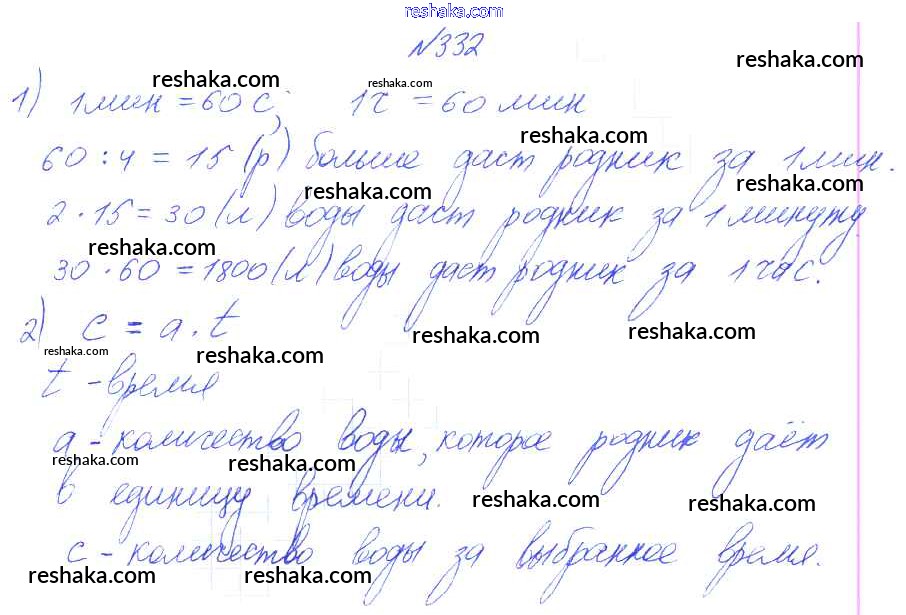 reshaka.com
№332
reshaka.com
reshaka.com
reshaka.com
1) 1 мин = 60 с; 1 ч = 60 мин
reshaka.com
60 : 4 = 15 (р) больше даст родник за 1 мин.
reshaka.com
reshaka.com
2 · 15 = 30 (л) воды даст родник за 1 минуту
reshaka.com
30 · 60 = 1800 (л) воды даст родник за 1 час.
2) c = a · t
reshaka.com
reshaka.com
reshaka.com
reshaka.com
t - время
a - количество воды, которое родник даёт
reshaka.com
reshaka.com
в единицу времени.
reshaka.com
reshaka.com
c - количество воды за выбранное время.
reshaka.com
reshaka.com
reshaka.com